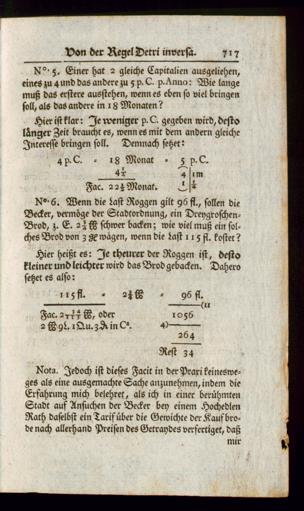 Von der Regel Detri inversa. 717
No. 5. Einer hat 2 gleiche Capitalien ausgeliehen,
eines zu 4 und das andere zu 5 p. C. p. Anno: Wie lange
muß das erstere ausstehen, wenn es eben so viel bringen
soll, als das andere in 18 Monaten?
Hier ist klar: Je weniger p. C. gegeben wird, desto
länger Zeit braucht es, wenn es mit dem andern gleiche
Interesse bringen soll. Demnach setzet:
4 p. C. = 18 Monat = 5 p. C.
4½ 4 1m
Fac. 22½ Monat. 1 ¼
No. 6. Wenn die Last Roggen gilt 96 fl., sollen die
Becker, vermöge der Stadtordnung, ein Dreygroschen-
Brod, z. E. schwer backen; wie viel muß ein sol-
ches Brod von 3 wägen, wenn die Last 115 fl. kostet?
Hier heißt es: Je theurer der Roggen ist, desto
kleiner und leichter wird das Brod gebacken. Dahero
setzet es also:
115 fl. = = 96 fl.
(11
Fac. oder 1056
4)
264
Rest 34
Nota. Jedoch ist dieses Facit in der Praxi keineswe-
ges als eine ausgemachte Sache anzunehmen, indem die
Erfahrung mich belehret, als ich in einer berühmten
Stadt auf Ansuchen der Becker bey einem Hochedlen
Rath daselbst ein Tarif über die Gewichte der Kaufbro-
de nach allerhand Preisen des Getraydes verfertiget, daß
mir